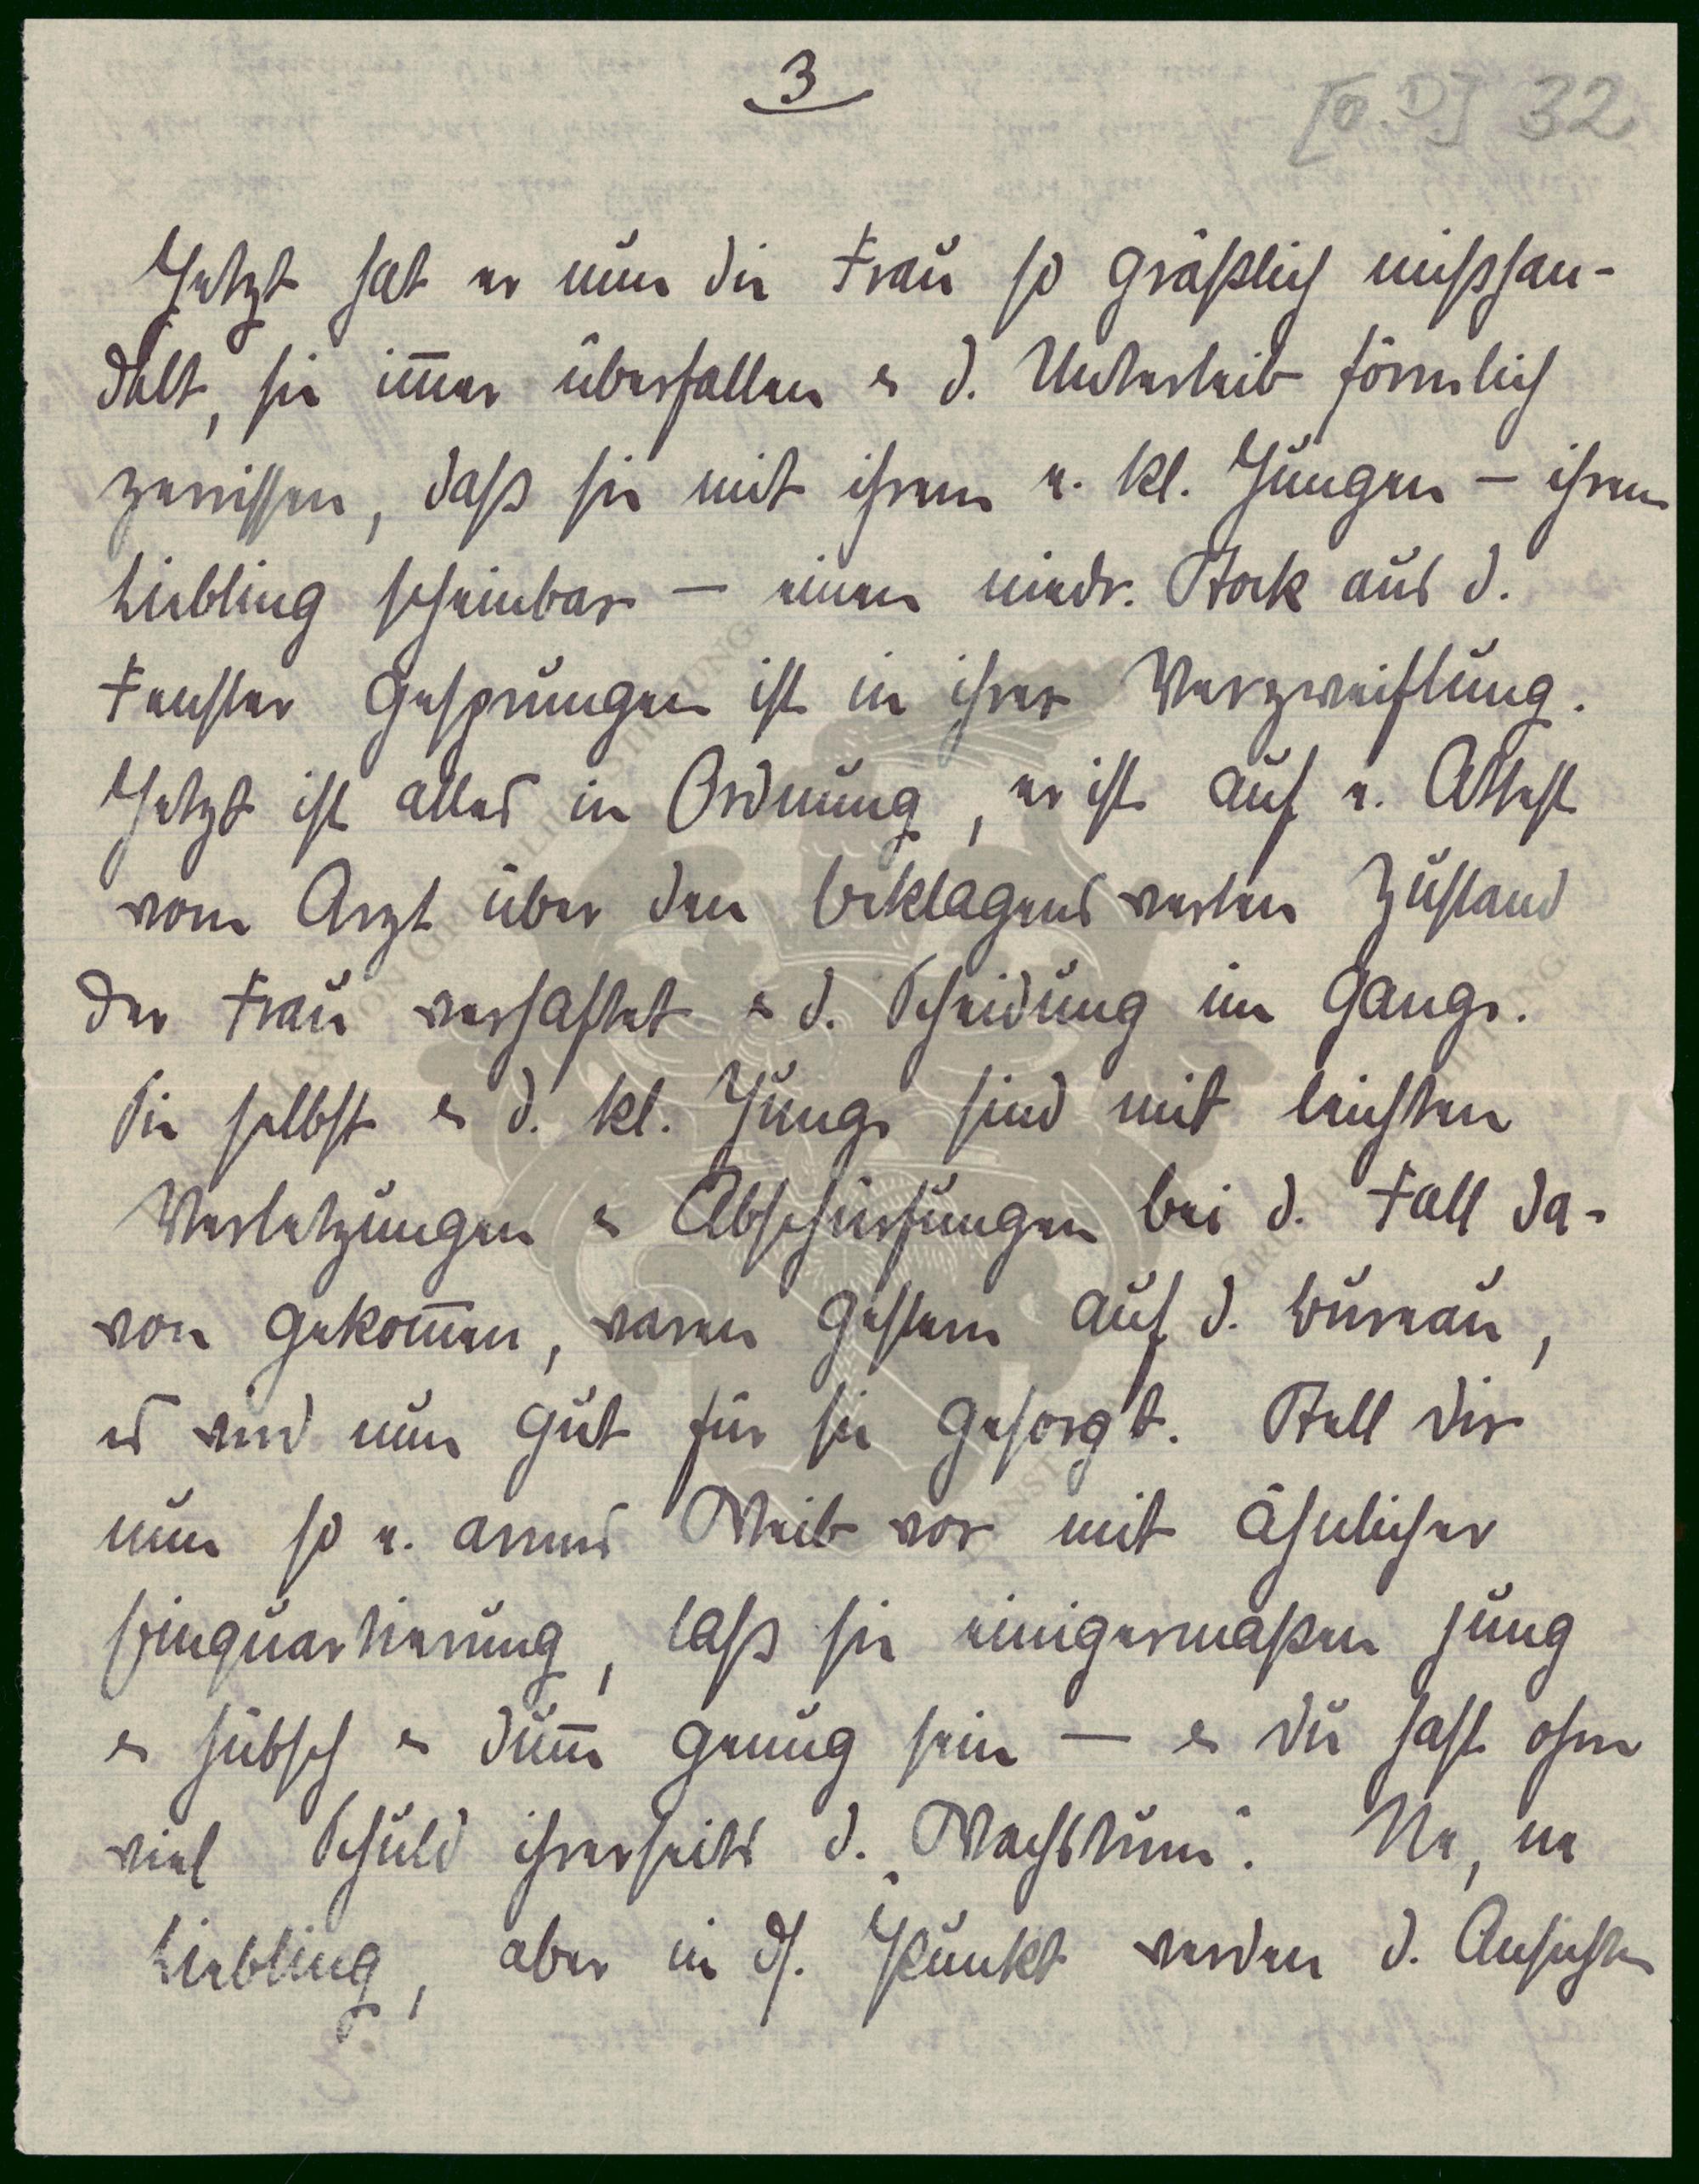 3
[o.D.] 32
Jetzt hat er nun die Frau so gräßlich mißhan-
delt, sie im̅er überfallen & d. Unterleib förmlich
zerrissen, daß sie mit ihrem e. kl. Jungen – ihrem
Liebling scheinbar – einen niedr. Stock aus d.
Fenster gesprungen ist in ihrer Verzweiflung.
Jetzt ist alles in Ordnung, er ist auf e. Attest
vom Arzt über den beklagenswerten Zustand
der Frau verhaftet & d. Scheidung im Gange.
Sie selbst & d. kl. Junge sind mit leichten
Verletzungen & Abschürfungen bei d. Fall da-
von gekom̅en, waren gestern auf d. Bureau,
es wird nun gut für sie gesorgt. Stell dir
nun so e. armes Weib vor mit ähnlicher
Einquartierung, laß sie einigermaßen jung
& hübsch & dum̅ genug sein – & du hast ohne
viel Schuld ihrerseits d. „Wachstum“. Ne, ne
Liebling, aber in ds. Punkt werden d. Ansichten